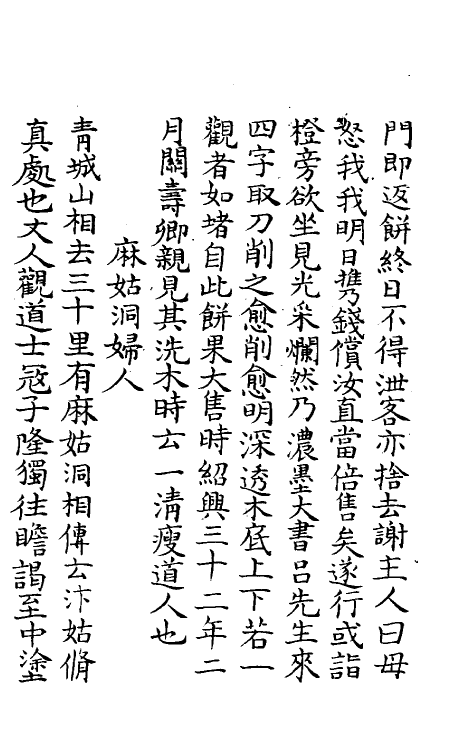 門即返餅終日不得泄客亦捨去謝主人曰毋
怒我我明日擕錢償汝直當倍售矣遂行或詣
橙旁欲坐見光采爛然乃濃墨大書呂先生來
四字取刀削之愈削愈明深透木底上下若一
觀者如堵自此餅果大售時紹興三十二年二
月關壽卿親見其洗木時云一清瘦道人也
麻姑洞婦人
青城山相去三十里有麻姑洞相傳云汴姑脩
真處也丈人觀道士冦子隆獨往瞻謁至中塗